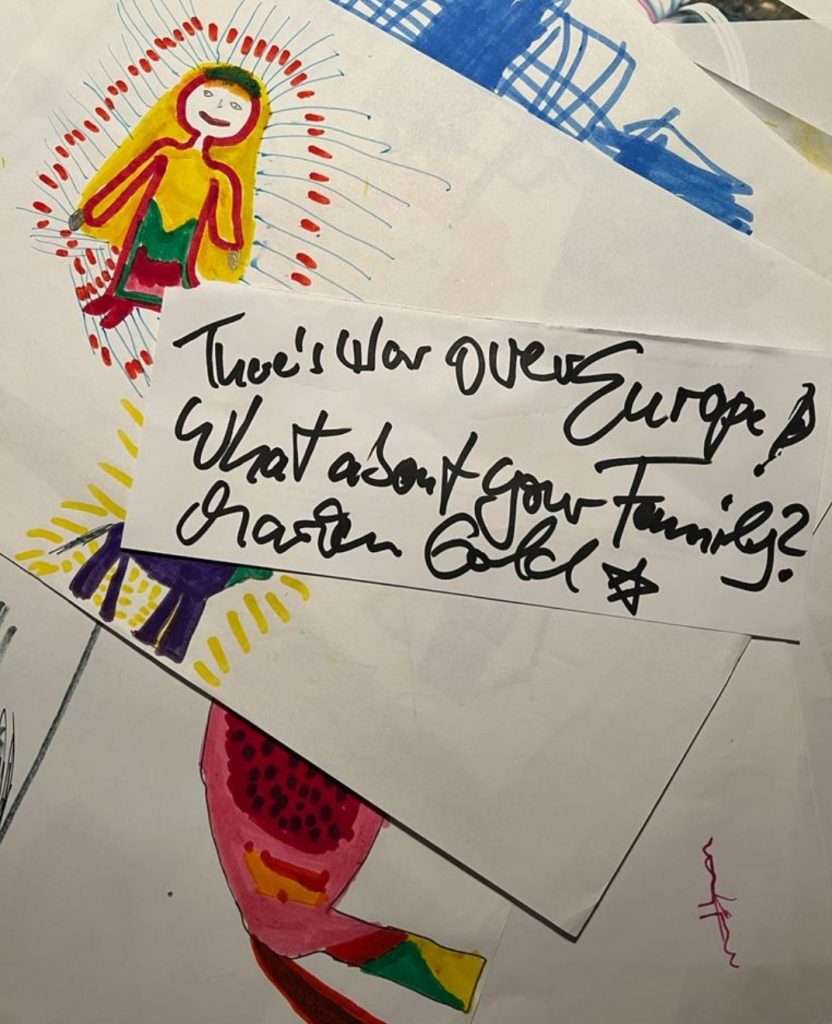 There's War over Europe!
What about your Family?
Marian Gold